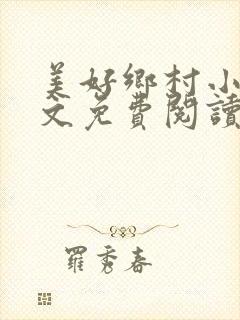 美好鄉村小
文免費閱讀
羅秀春